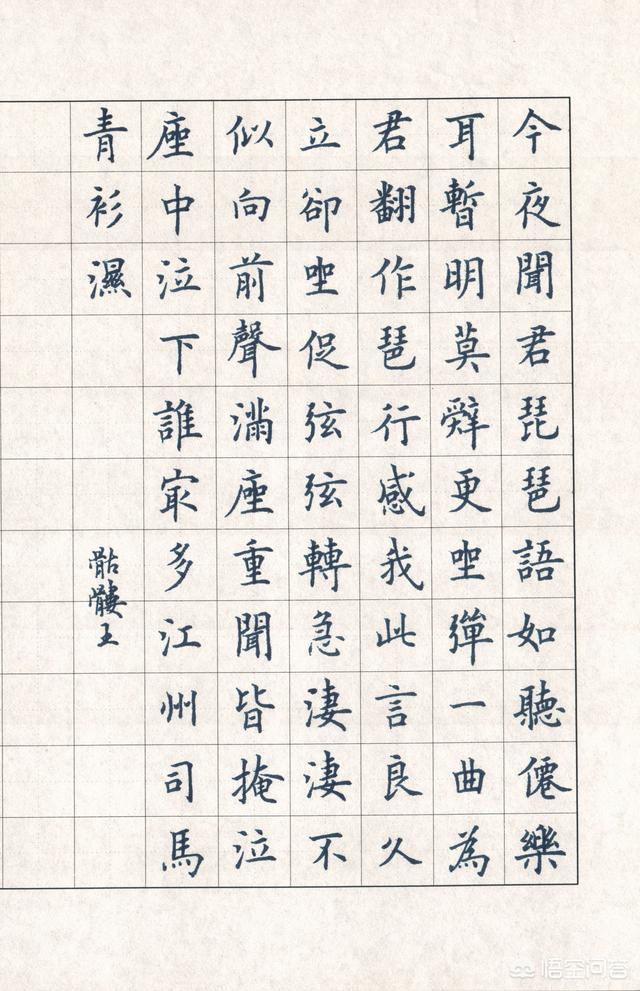 今夜聞君琵琶語如聽僊樂
耳暫明莫辤更坐彈一曲為
君翻作琶行感我此言良久
立卻坐促弦弦轉急淒淒不
似向前聲滿座重聞皆掩泣
座中泣下誰家多江州司馬
青衫濕
骷髏王
悟空问答